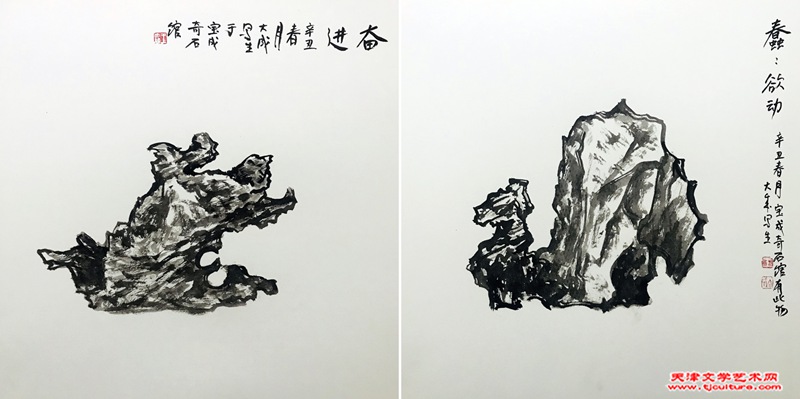 奋进 辛丑春月大成写生于宝成奇石馆
蠢:欲动 辛丑春月宝成奇石馆有此物
大成写生
天津文学艺术网
www.tjculture.com